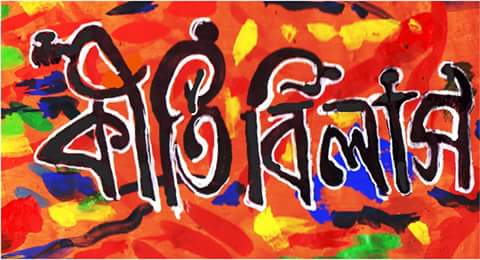 কীর্তি বিলাস